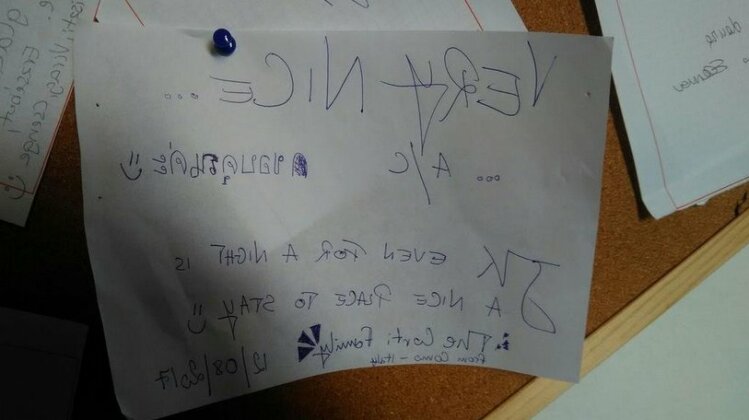 VERY NICE ...
... A/C ขอบคุณค่ะ :)
EVEN FOR A NIGHT IS
A NICE PLACE TO STAY :)
The Corti Family
from Como - Italy
12/08/2017
Laura